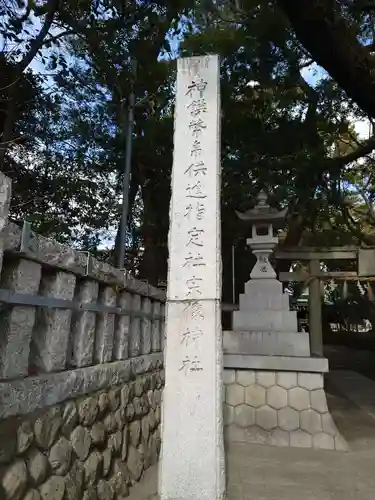 神饌幣帛供進指定社宗像神社